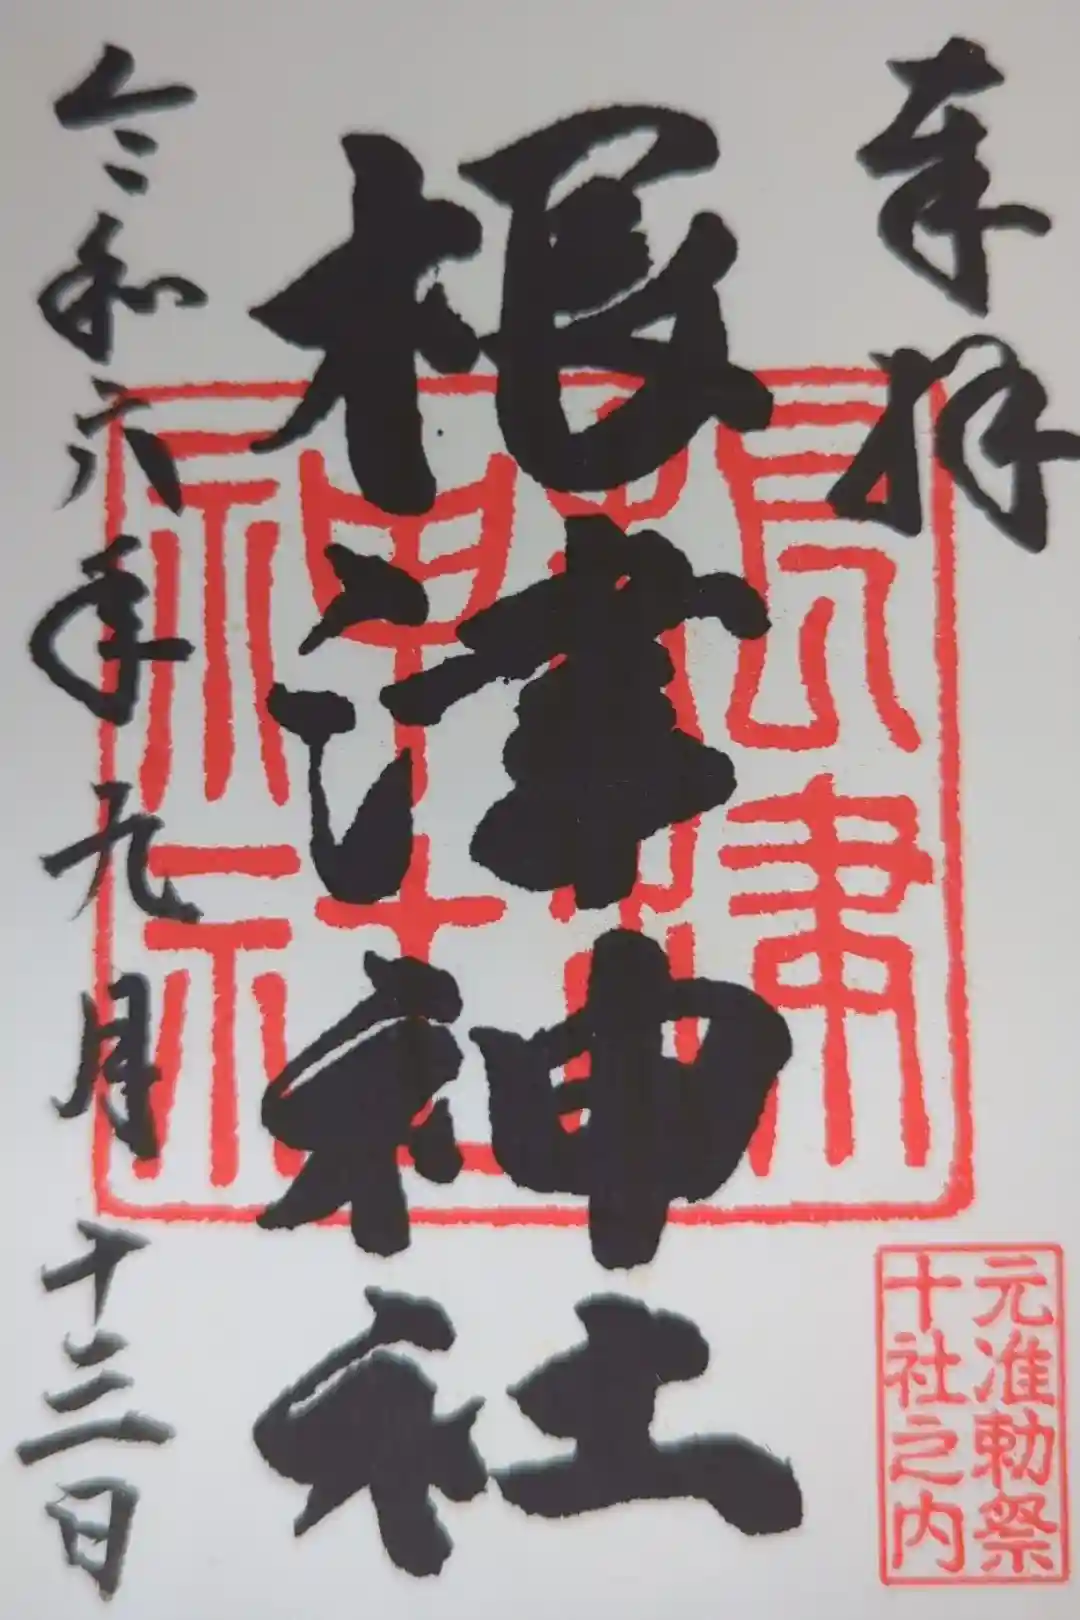 奉拝
根津神社
根津
神社
元准勅祭
十社之内
令和六年九月十三日